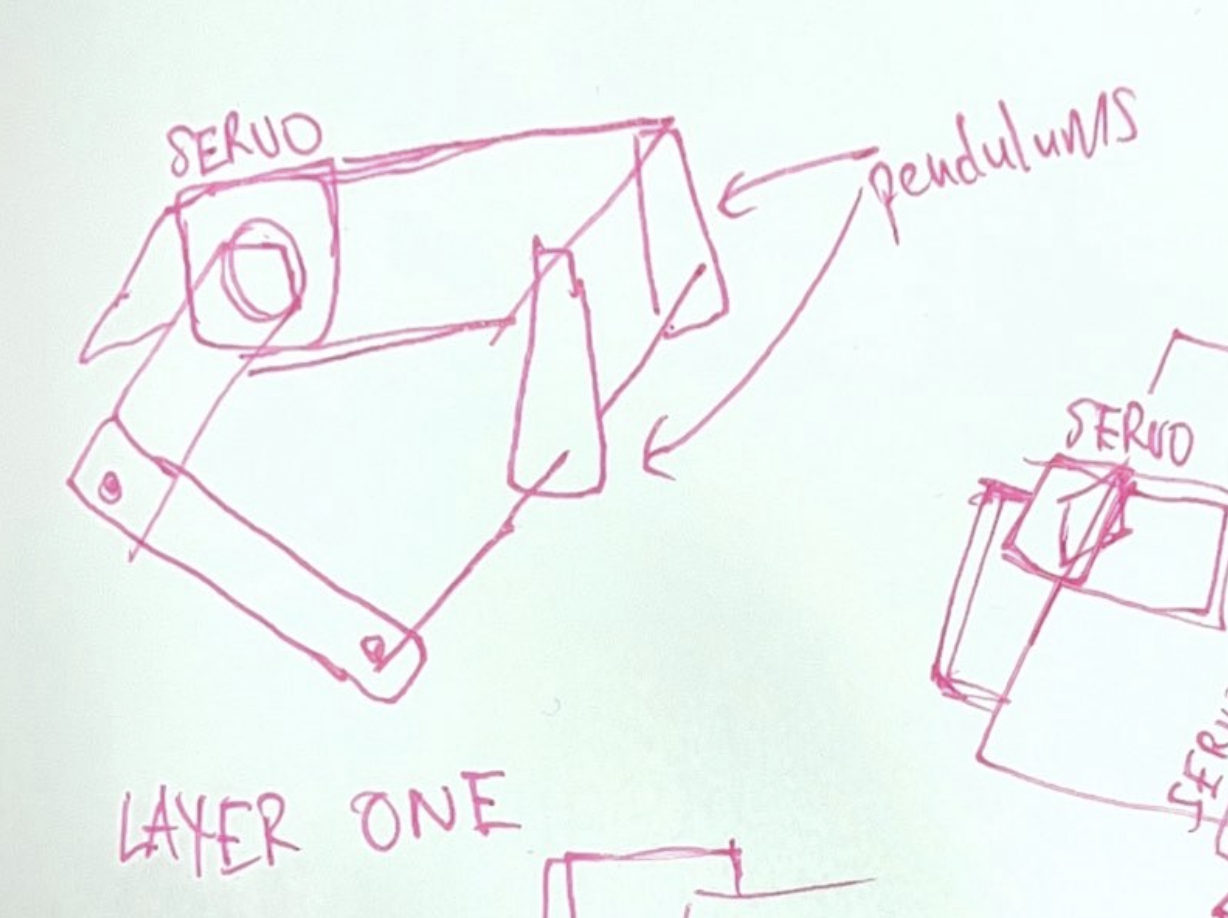 SERVO
pendulums
SERVO
LAYER ONE